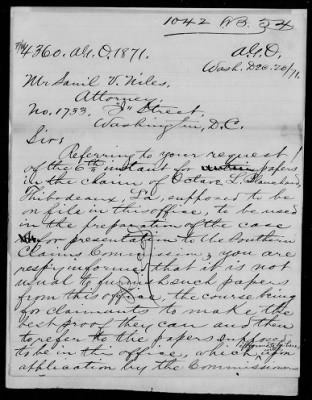 1042 RB. 
4360. A.G.O. 1871.
A.G.O.
Wash. Dec. 20/71.
Mr Saml V. Niles,
Attorney,
No. 1733, Street,
Washington, D.C.
Sir:
Referring to your request
of the 6th instant for certain papers
in the claim of Octave L. Blanchard,
Thibodeaux, La, supposed to be
on file in this office, to be used
in the preparation of the case
for presentation to the Southern
Claims Commissioners, you are
respy informed that it is not
usual to furnish such papers
from this office, the course being
for claimants to make the
best proof they can and then
to refer to the papers supposed
to be in this office, which upon
application by the Commissioners